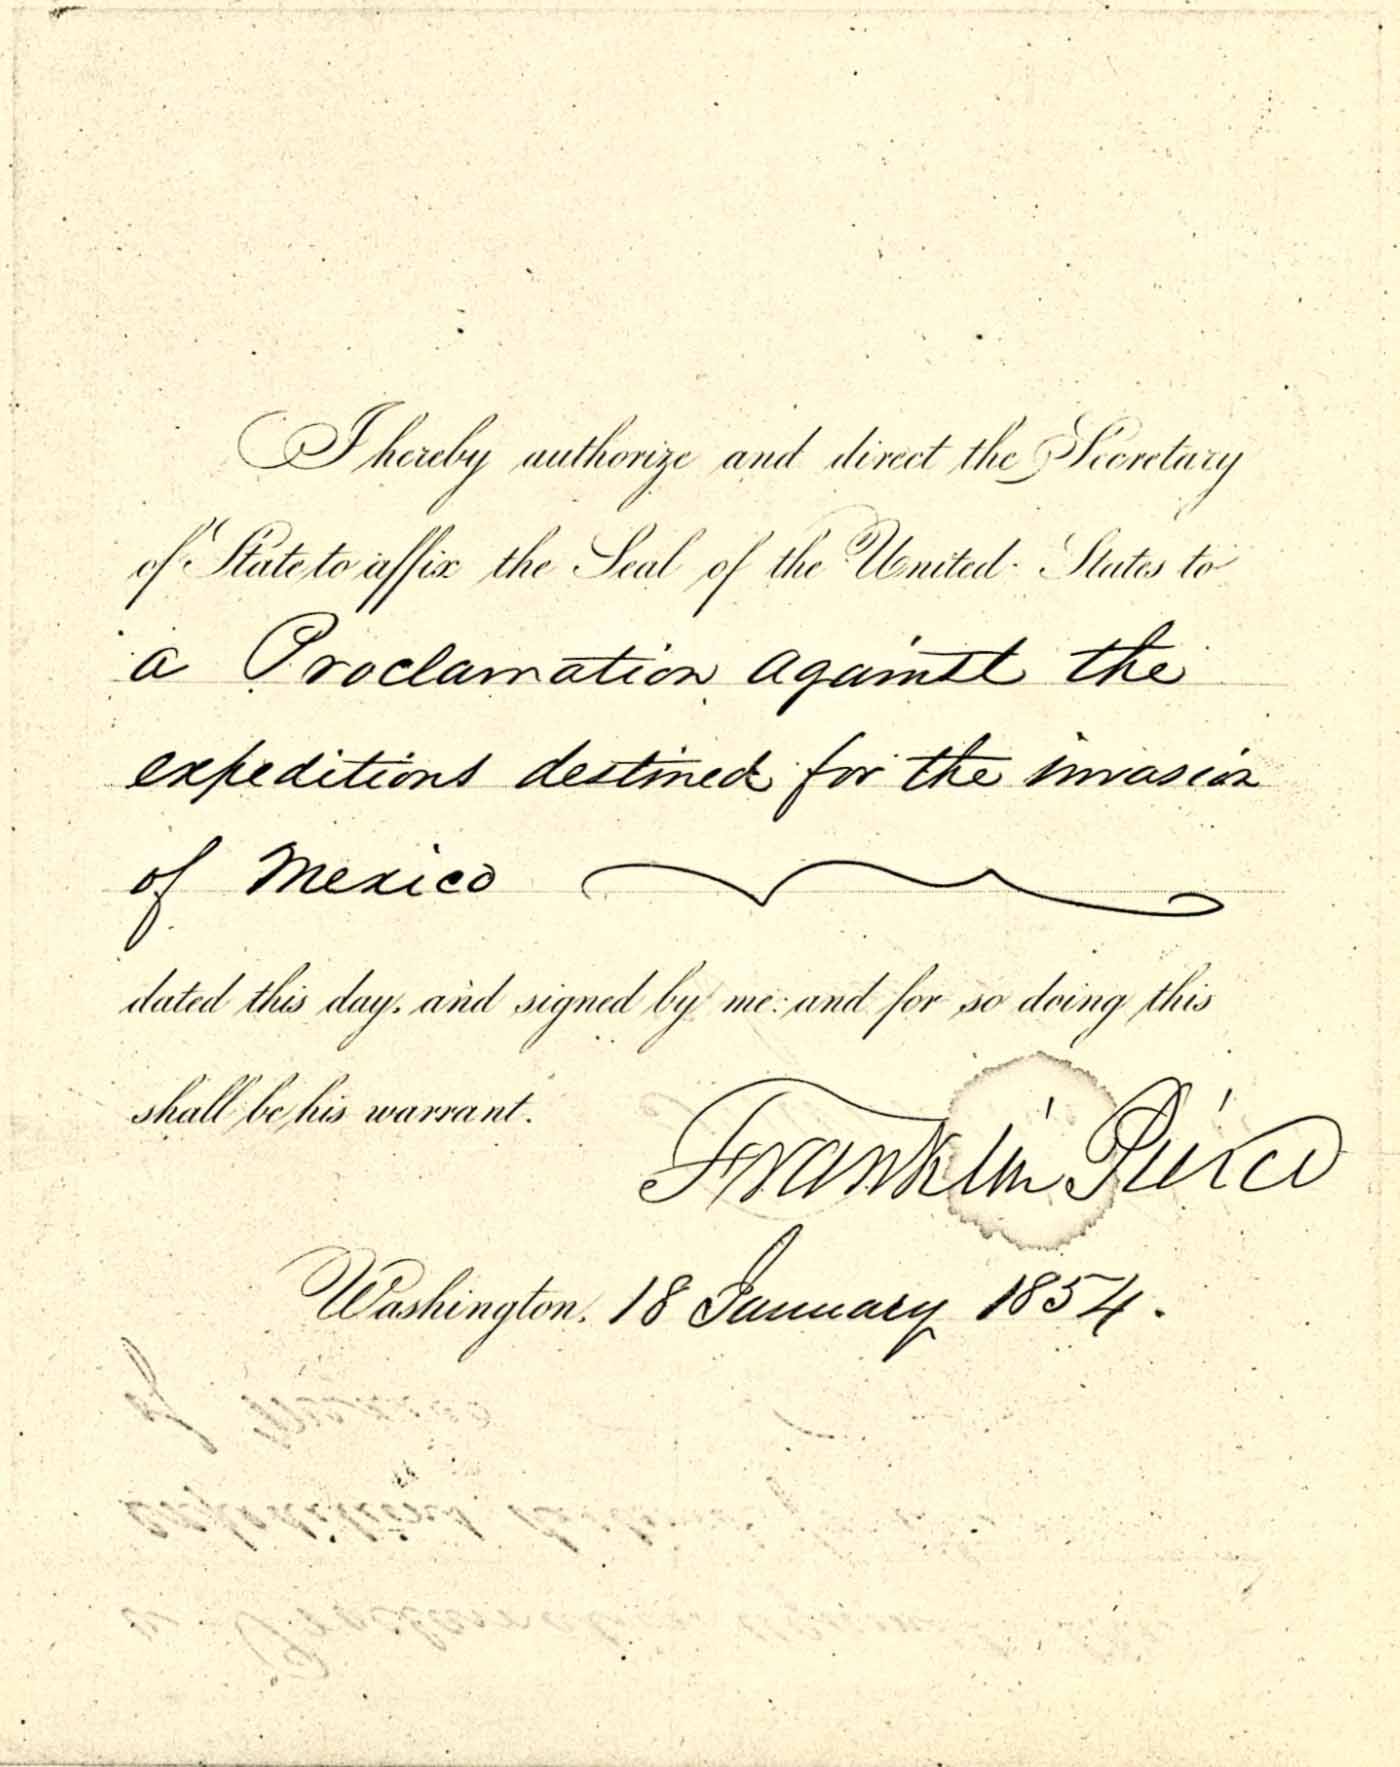 I hereby authorize and direct the Secretary
of State to affix the Seal of the United States to
a Proclamation against the
expeditions destined for the invasion
of Mexico
dated this day, and signed by me: and for so doing this
shall be his warrant.
Franklin Pierce
Washington, 18 January 1854.